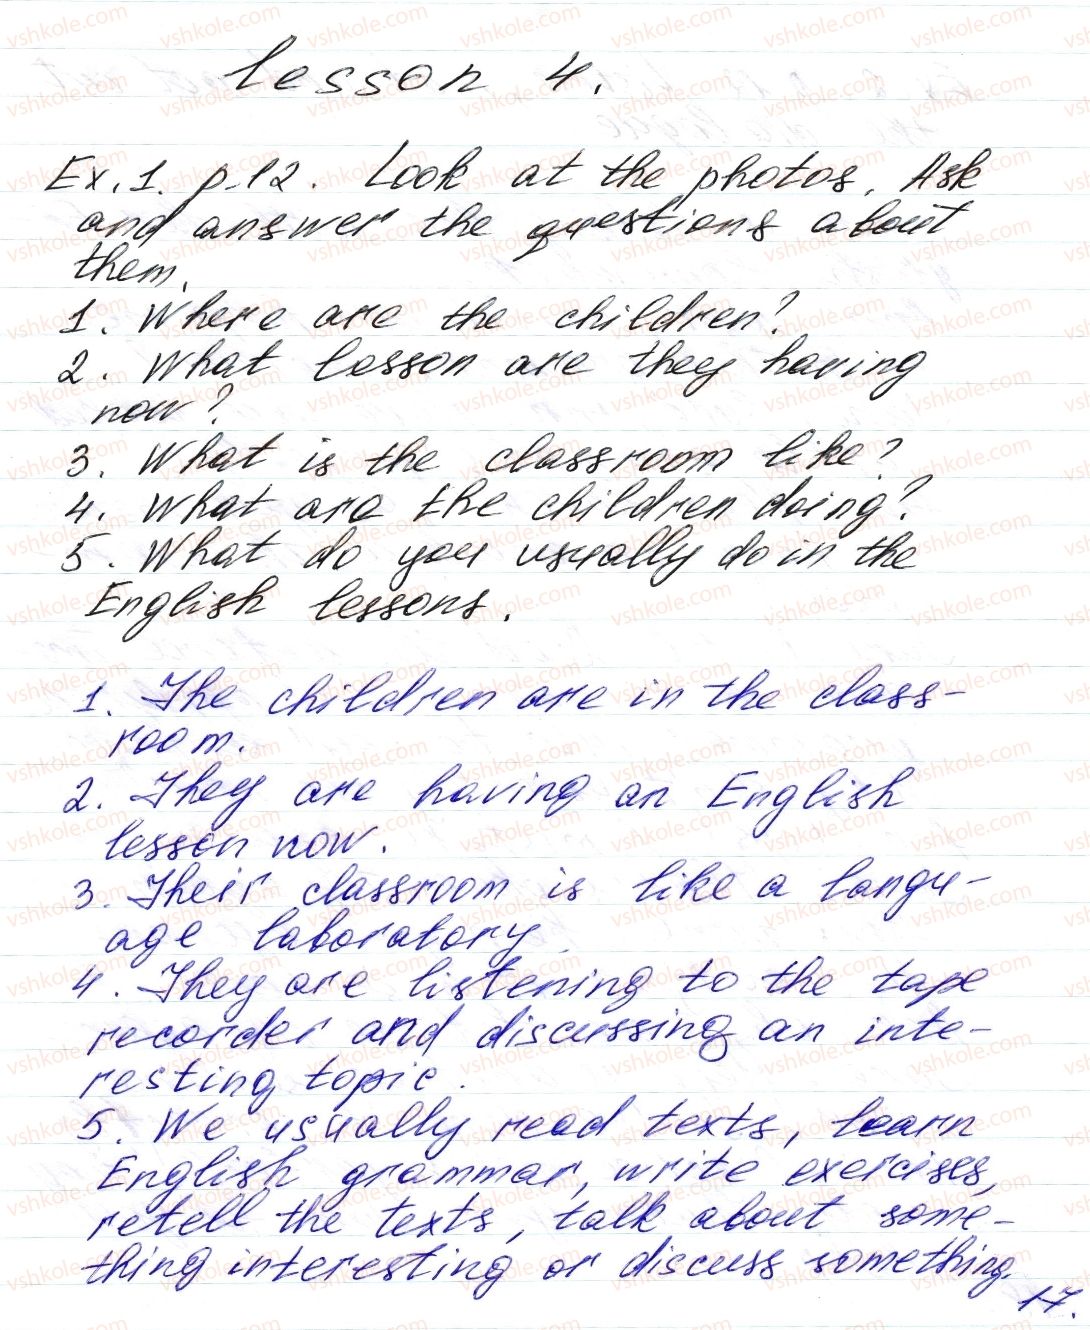 Lesson 4.
Ex. 1. p. 12. Look at the photos. Ask
and answer the questions about
them.
1. Where are the children?
2. What lesson are they having
now?
3. What is the classroom like?
4. What are the children doing?
5. What do you usually do in the
English lessons.
1. The children are in the class-
room.
2. They are having an English
lesson now.
3. Their classroom is like a langu-
age laboratory.
4. They are listening to the tape
recorder and discussing an inte-
resting topic.
5. We usually read texts, learn
English grammar, write exercises,
retell the texts, talk about some-
thing interesting or discuss something.
17.
vshkole.com